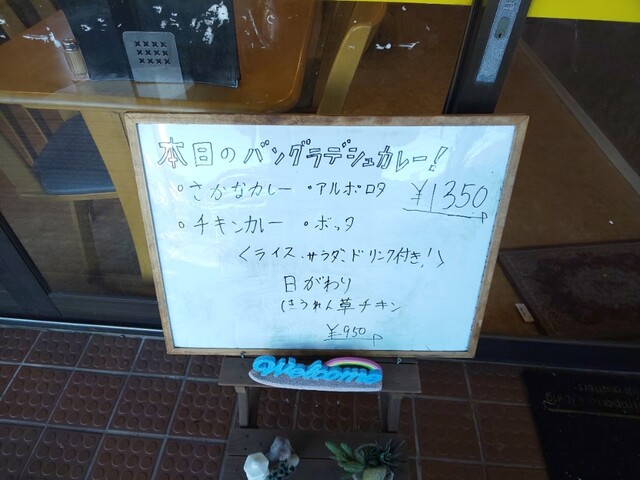 本日のバングラデシュカレー!
・さかなカレー ・アルボロタ ¥1350
・チキンカレー ・ボッタ
<ライス、サラダ、ドリンク付き!>
日がわり
ほうれん草チキン
¥950
Welcome